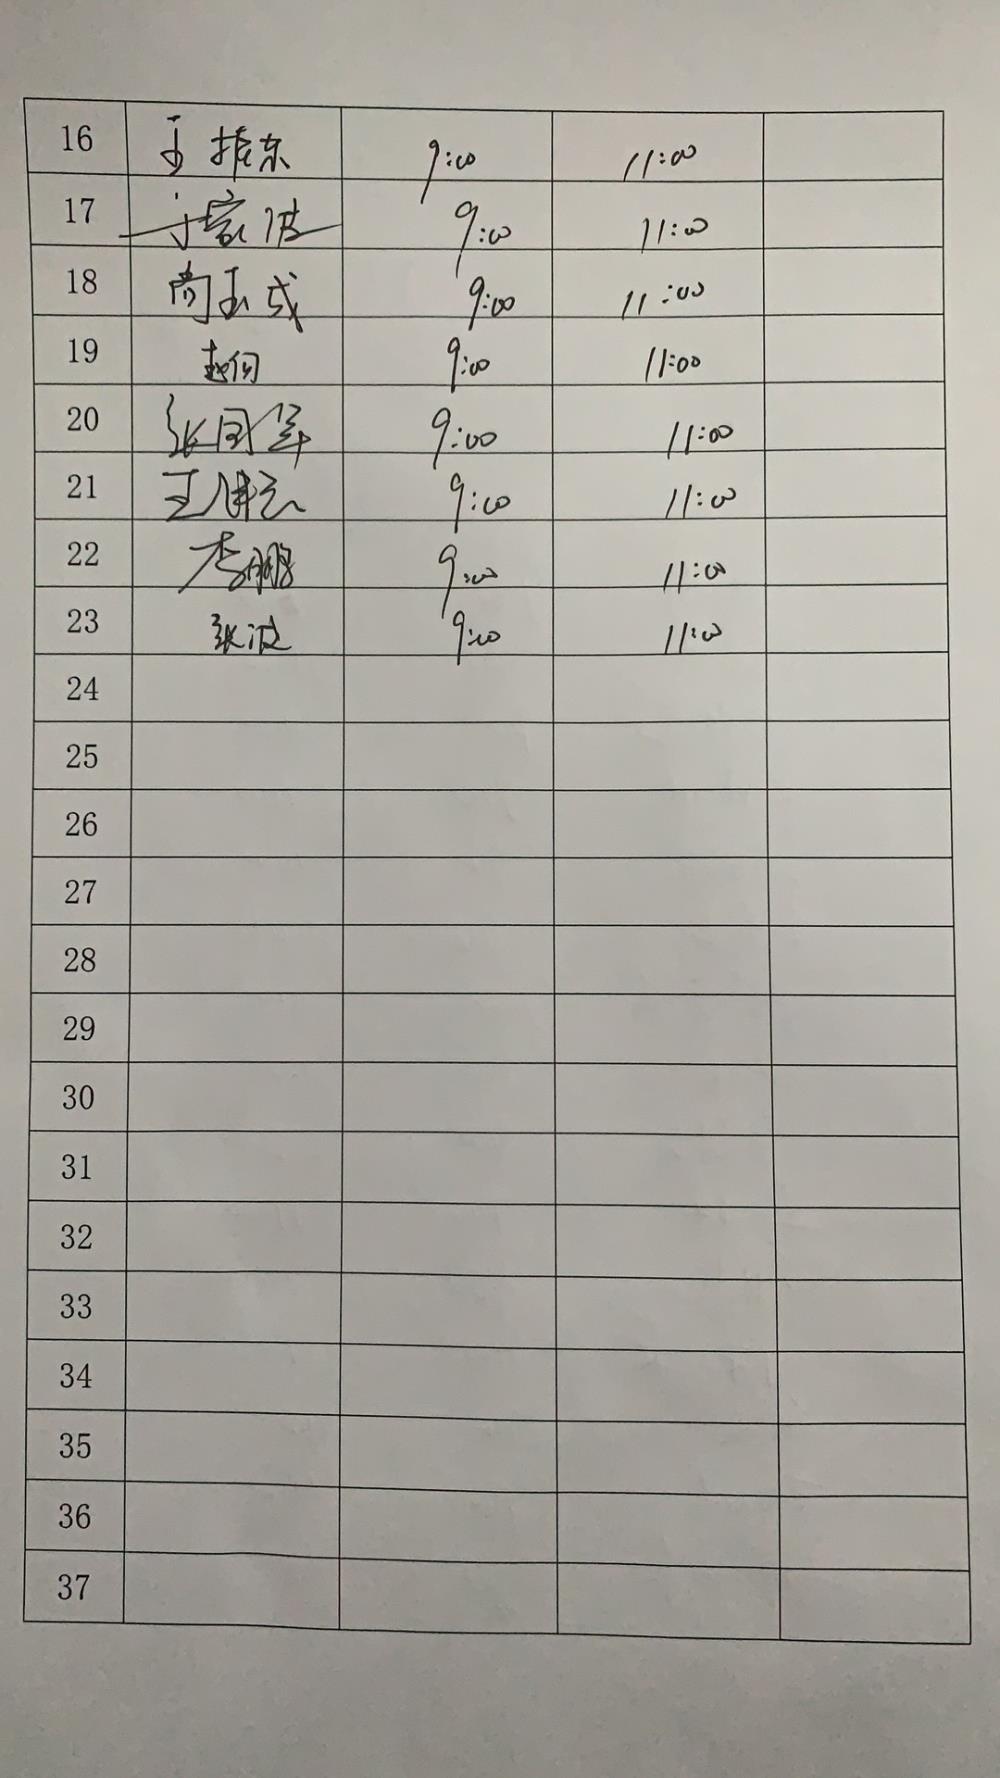 16 王振东 9:00 11:00
17 家波 9:00 11:00
18 尚玉成 9:00 11:00
19 赵何 9:00 11:00
20 张同军 9:00 11:00
21 王健 9:00 11:00
22 李鹏 9:00 11:00
23 张波 9:00 11:00
24
25
26
27
28
29
30
31
32
33
34
35
36
37